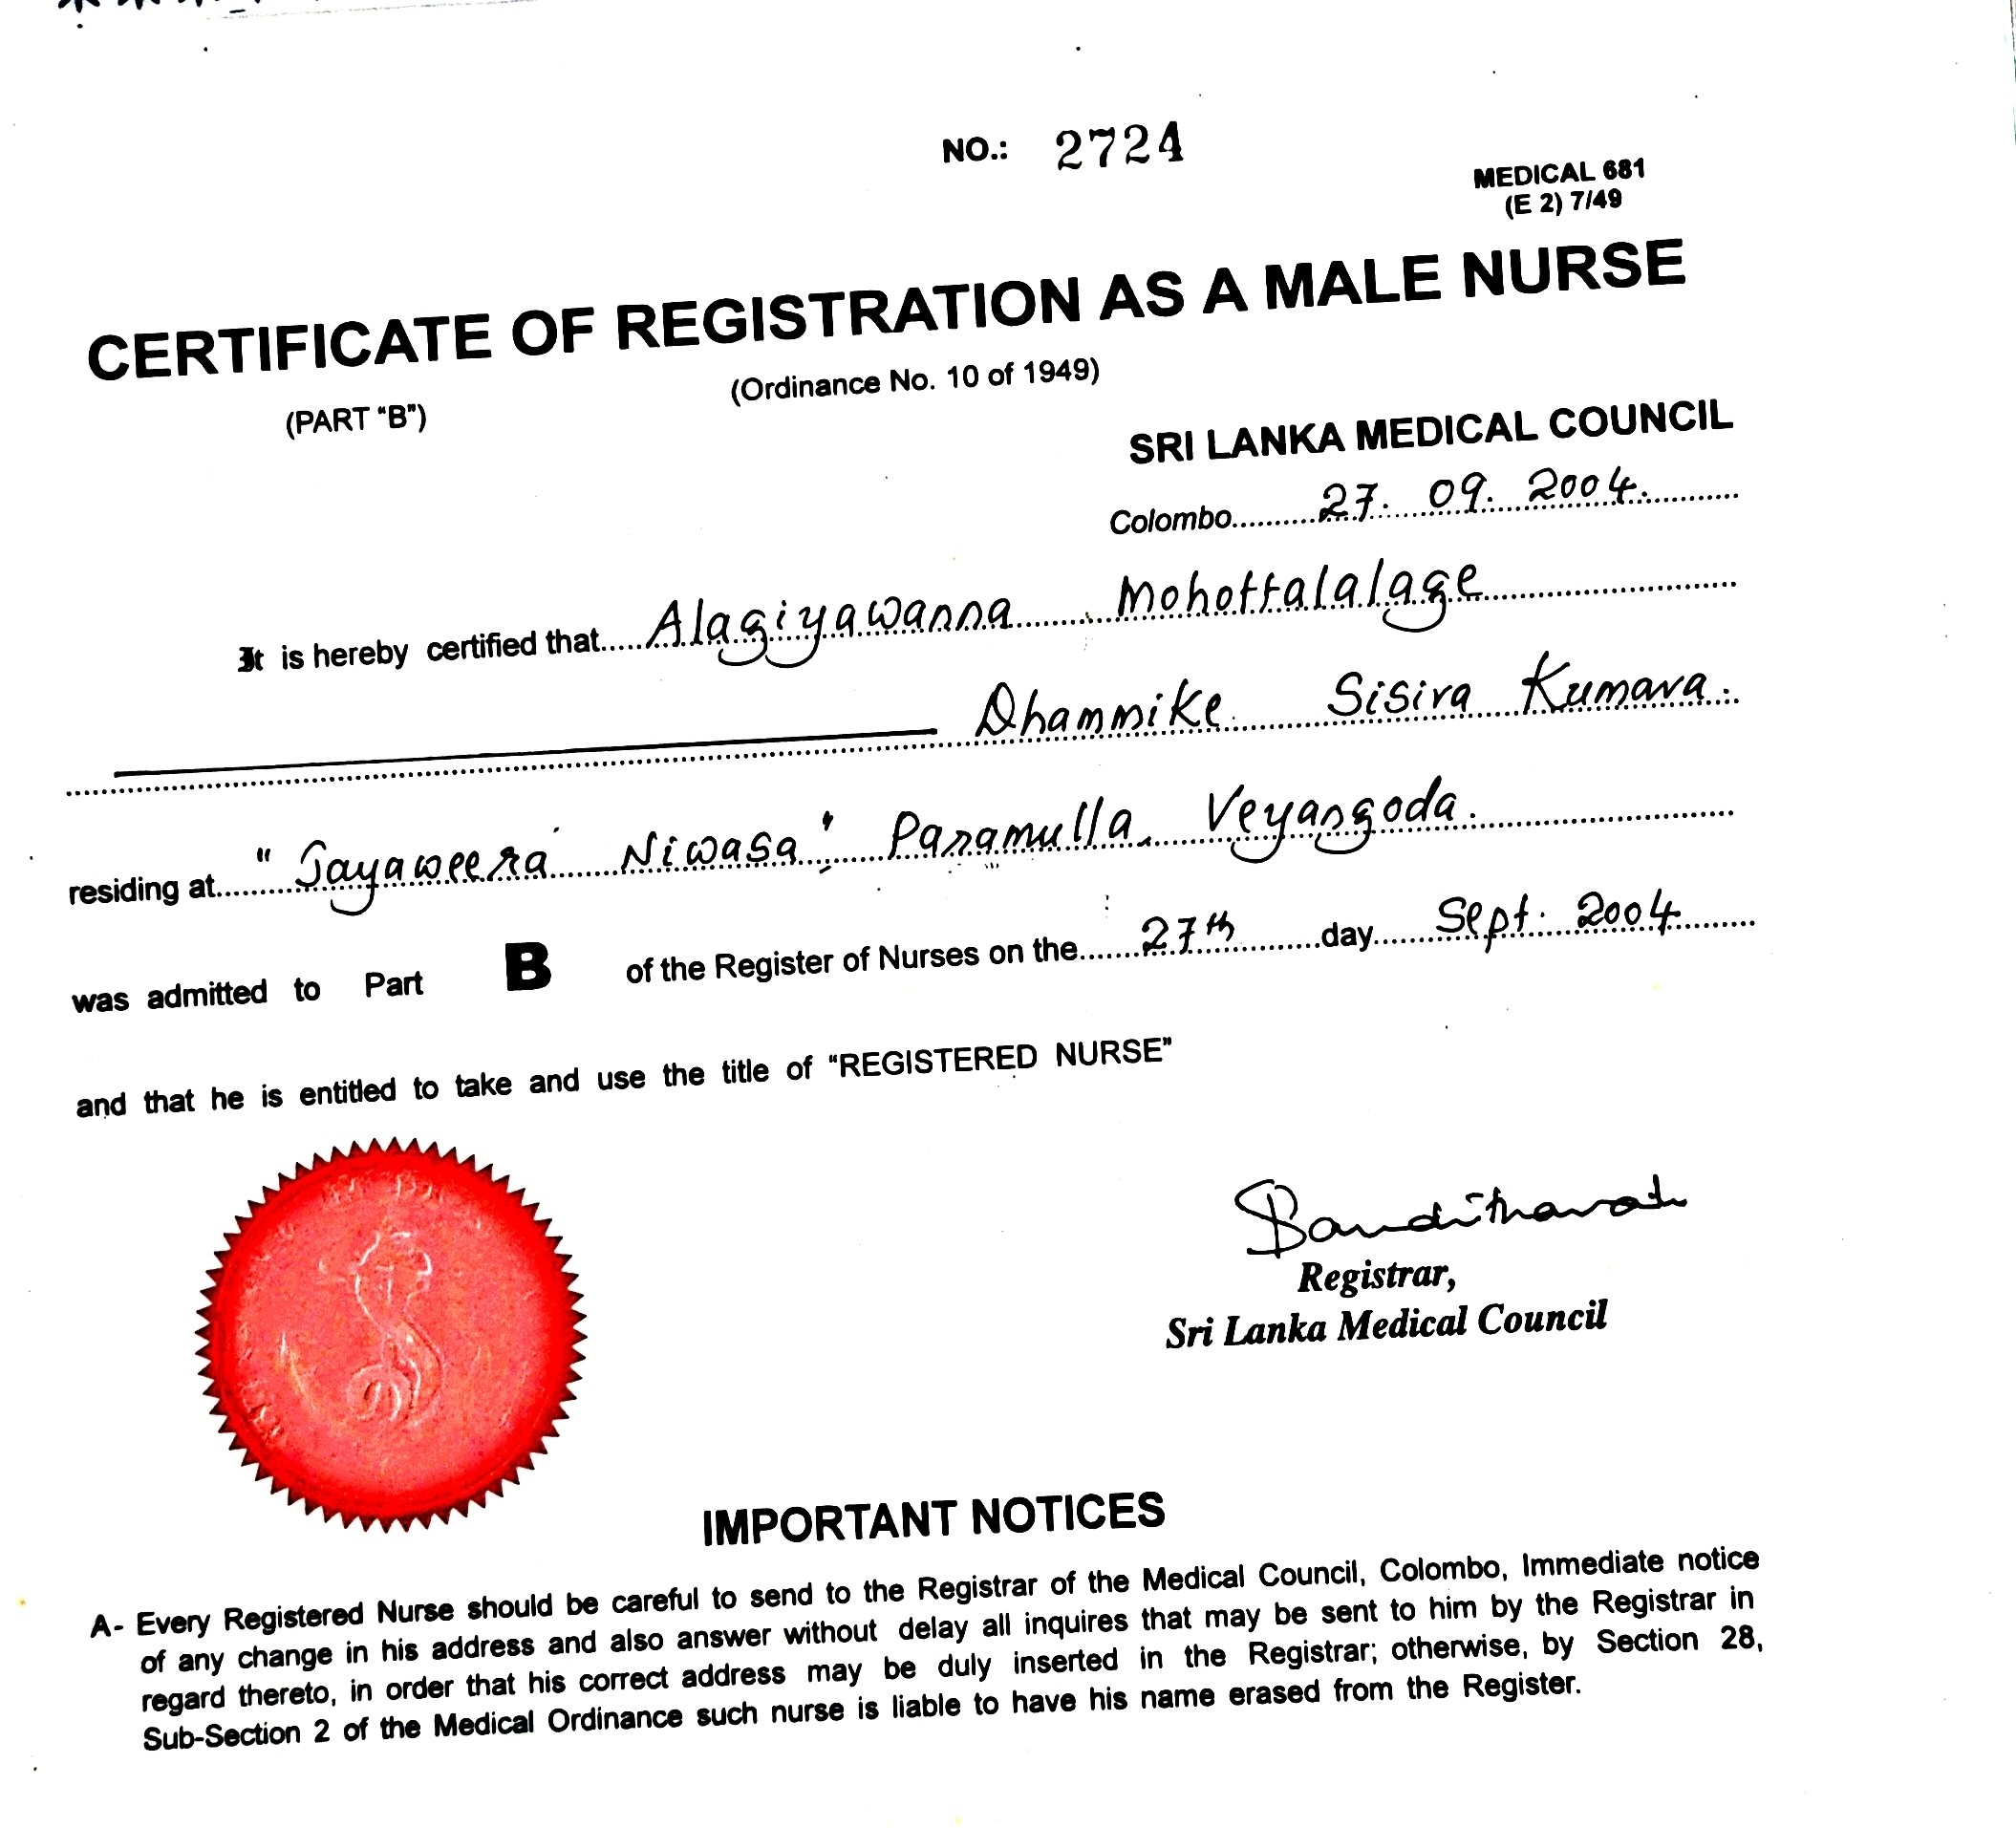 NO.: 2724
MEDICAL 681
(E 2) 7/49
CERTIFICATE OF REGISTRATION AS A MALE NURSE
(Ordinance No. 10 of 1949)
(PART “B”)
SRI LANKA MEDICAL COUNCIL
Colombo 27. 09. 2004.
It is hereby certified that Alagiyawanna Mohottalalage
Dhammike Sisira Kumara.
residing at "Jayaweera Niwasa" Panamulla, Veyangoda.
was admitted to Part B of the Register of Nurses on the 27th day Sept. 2004
and that he is entitled to take and use the title of “REGISTERED NURSE”
Registrar,
Sri Lanka Medical Council
IMPORTANT NOTICES
A- Every Registered Nurse should be careful to send to the Registrar of the Medical Council, Colombo, Immediate notice
of any change in his address and also answer without delay all inquires that may be sent to him by the Registrar in
regard thereto, in order that his correct address may be duly inserted in the Registrar; otherwise, by Section 28,
Sub-Section 2 of the Medical Ordinance such nurse is liable to have his name erased from the Register.